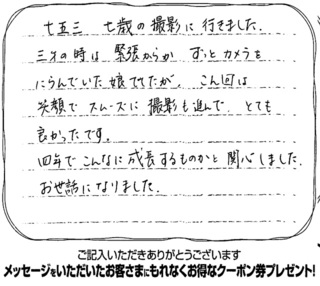 七五三 七歳の撮影に行きました.
三才の時は 緊張からか ずっとカメラを
にらんでいた娘でしたが、こん回は
笑顔で スムーズに 撮影も進んで とても
良かったです.
四年でこんなに成長するものかと 関心しました.
お世話になりました.
ご記入いただきありがとうございます
メッセージをいただいたお客さまにもれなくお得なクーポン券プレゼント!